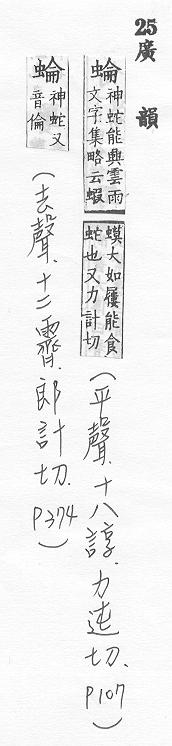 25廣韻
蜦神蛇能興雲雨文字集略云蝦蟆大如屨能食蛇也又力計切(平聲.十八諄.力迍切.P107)
蜦神蛇又音倫(去聲.十二霽.郎計切.P374)